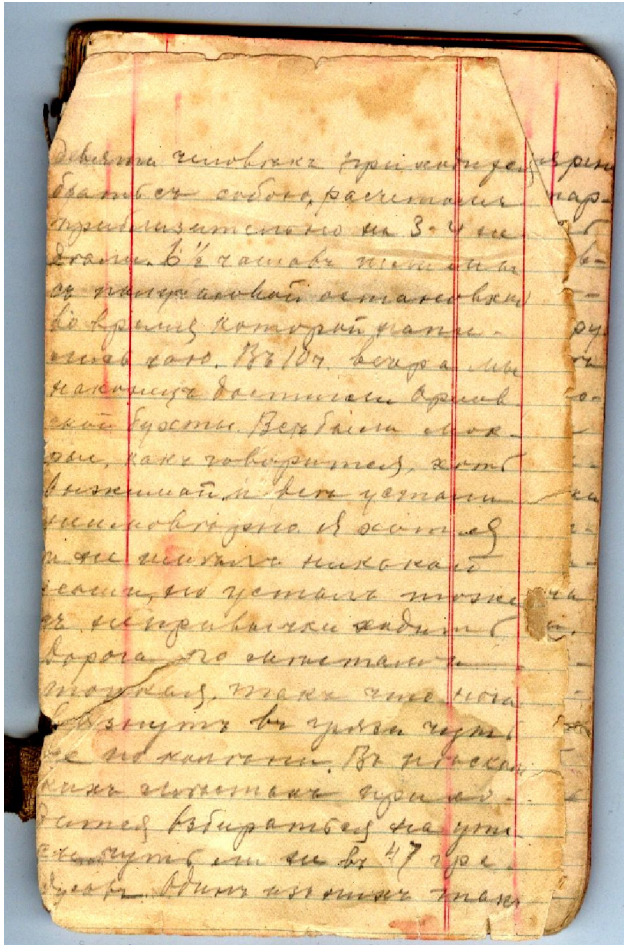 девяти человекъ приходится
брать съ собою, расчетомъ
приблизительно на 3-4 не-
дѣли. 6½ часовъ шли мы
съ получасовой остановкой
во время которой напи-
лись чаю. Въ 10ч. вечера мы
наконецъ достигли Орлов
ской бухты. Всѣ были мок-
рые, какъ говорится, хоть
выжимай и всѣ устали
неимовѣрно. Я хотя
и не несъ никакой
ноши, но усталъ тоже
съ непривычки ходить
Дорога по мѣстамъ
топкая, такъ что ноги
вязнутъ въ грязи чуть
не по колѣни. Въ нѣсколь
кихъ мѣстахъ прихо-
дится взбираться на уте
сы чуть ли не въ 47 гра-
дусовъ. Одинъ изъ нихъ так